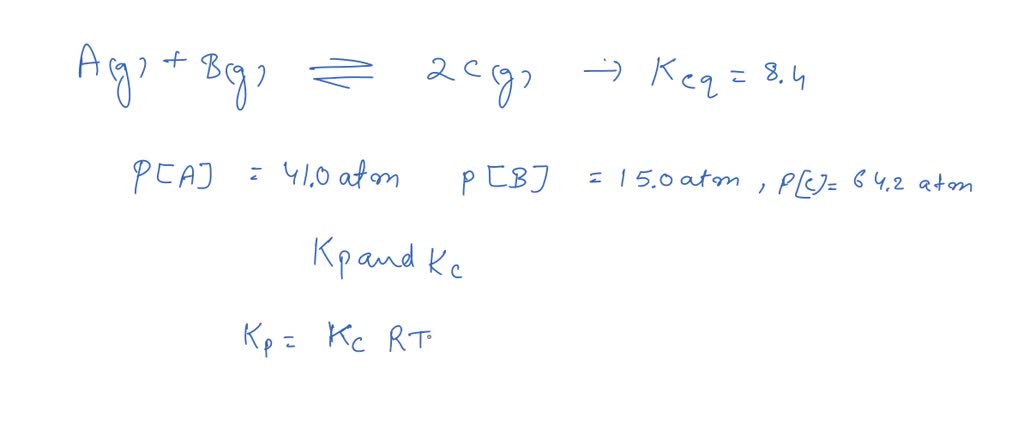 A(g) + B(g) ⇌ 2C(g) → Keq = 8.4
P[A] = 41.0 atm P[B] = 15.0 atm, P[C] = 64.2 atm
Kp and Kc
Kp = Kc RT